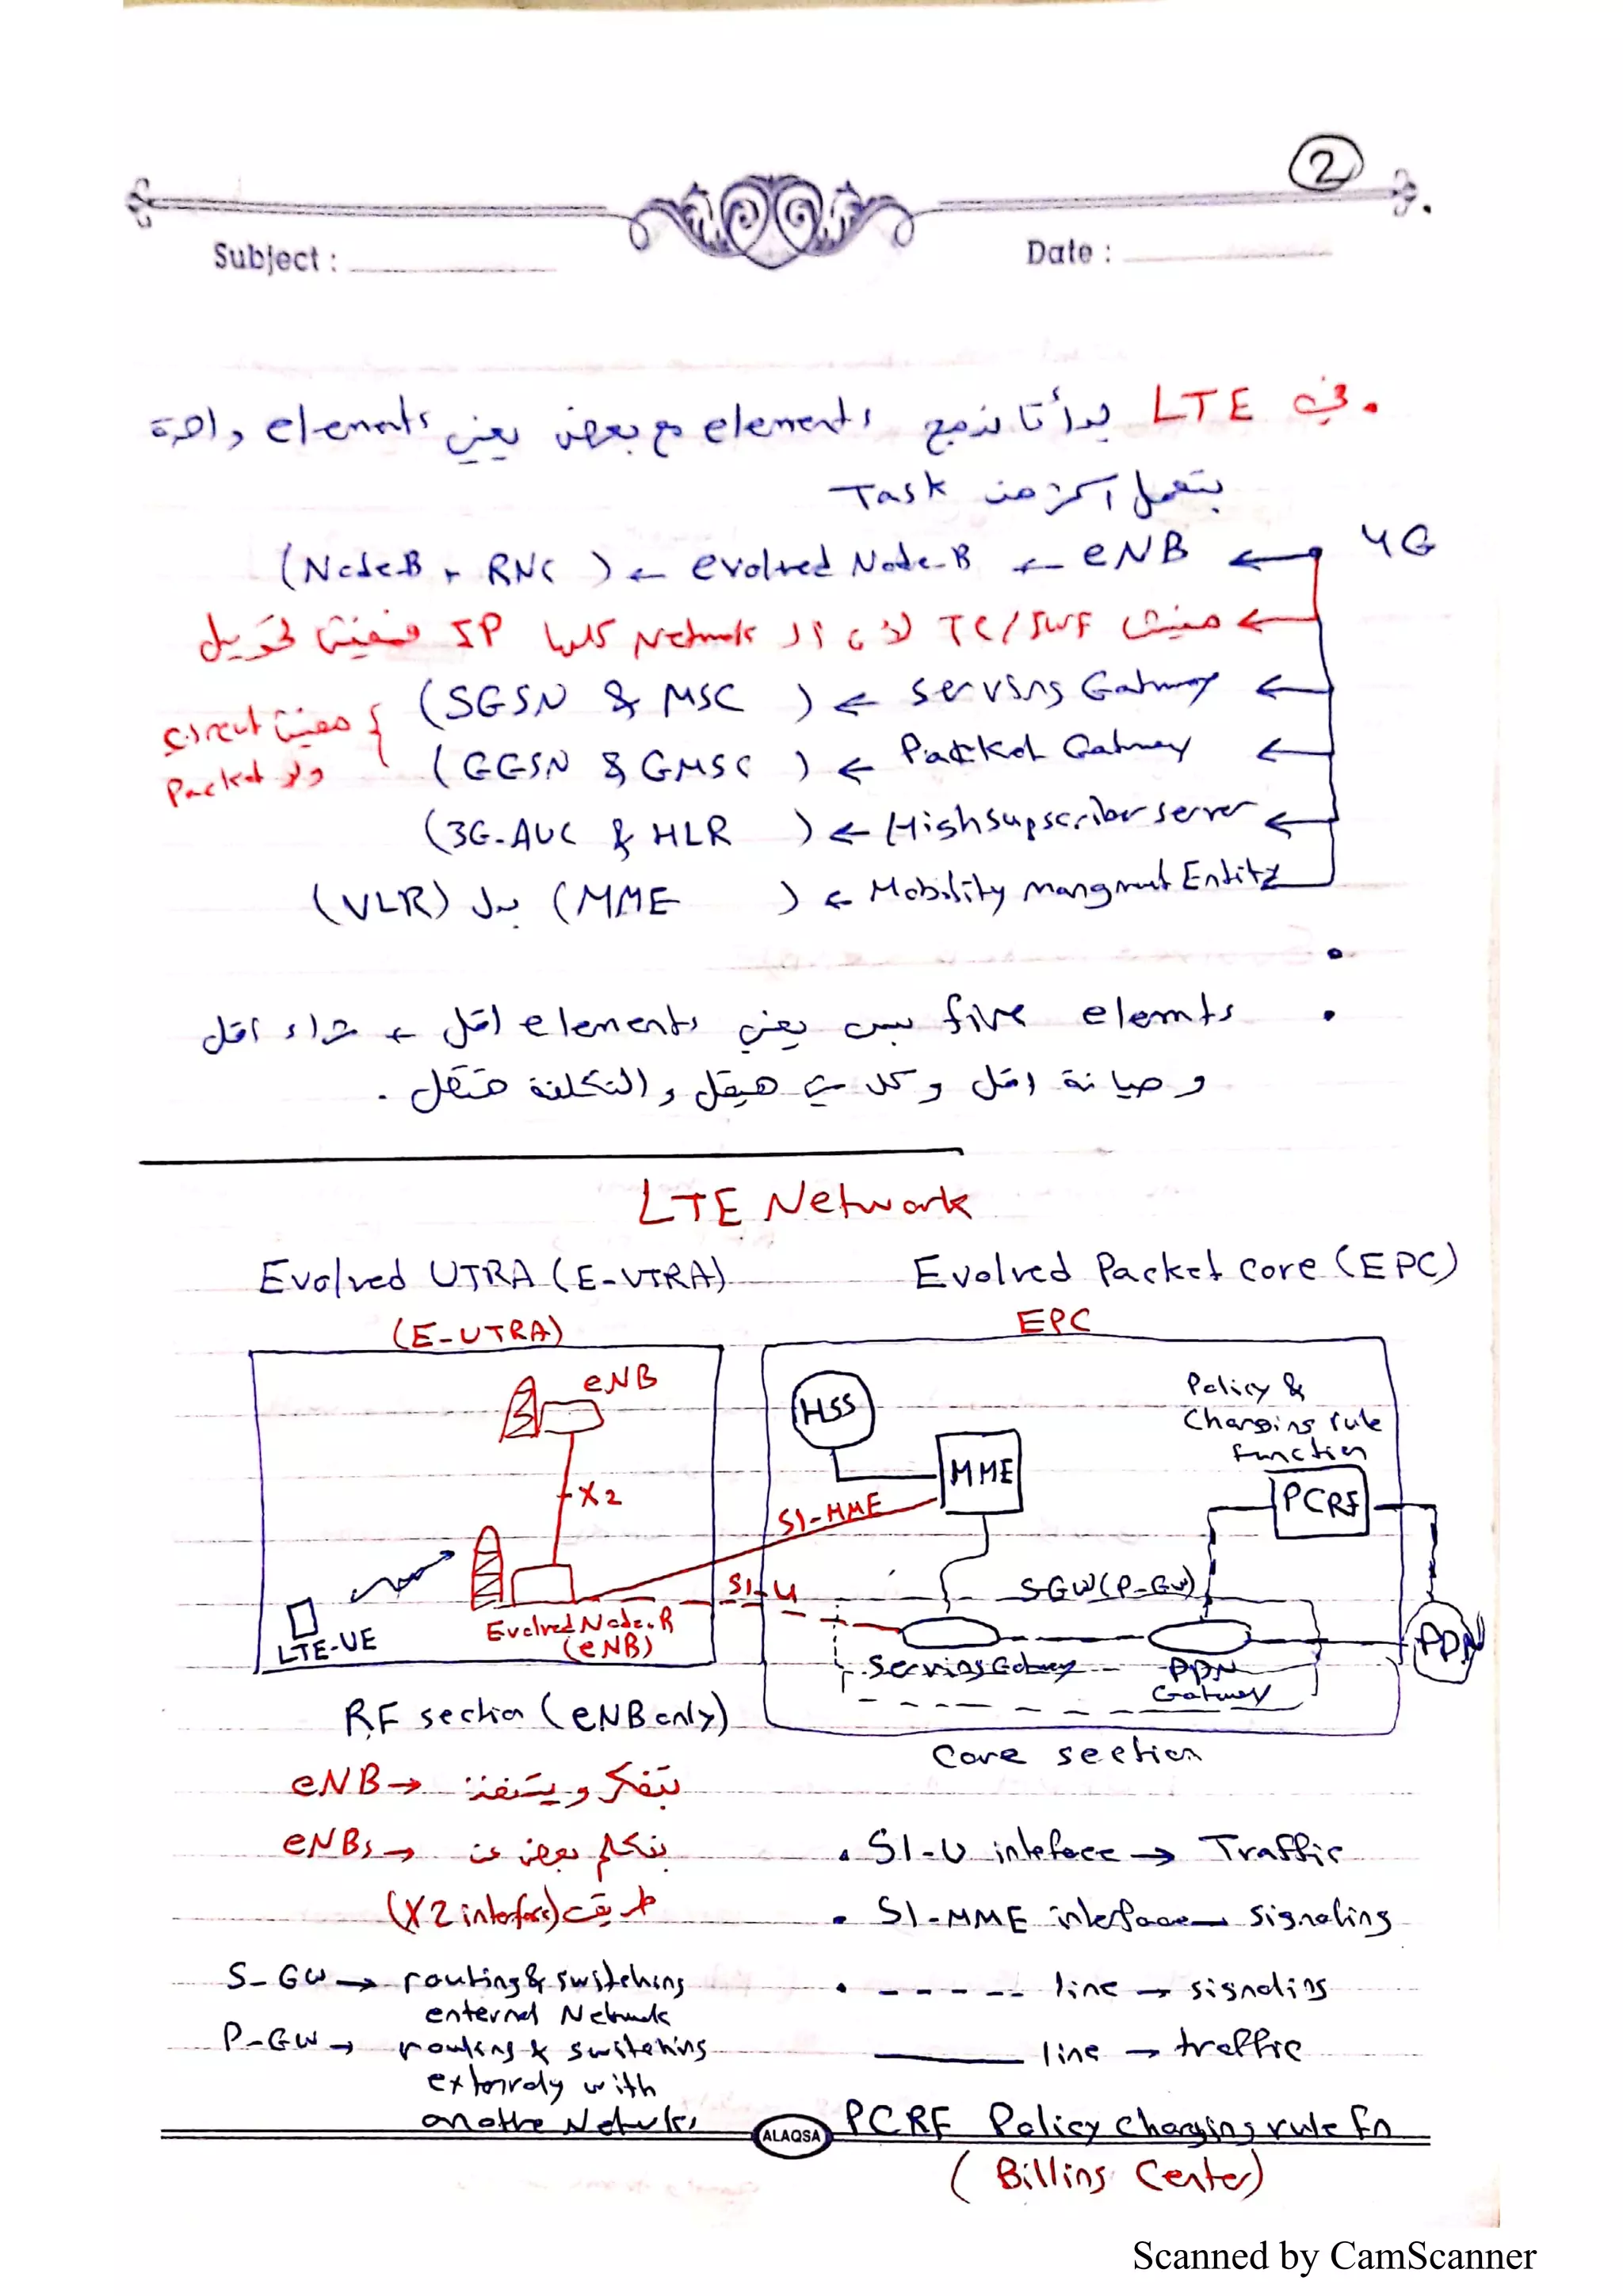 2
Subject :
Date :
. في LTE بدأنا ندمج elements مع بعض يعني elements واحدة
بتعمل اكتر من Task
4G
eNB ← evolved Node-B ← (Node-B + RNC)
مفيش TC/IWF لان ال Network كلها IP فمفيش تحويل
Serving Gateway ← (SGSN & MSC)
Packet Gateway ← (GGSN & GMSC)
} مفيش circuit
ولا Packet
High Supscriber Server ← (3G-AUC & HLR)
Mobility mangment Entity ← (MME) بدل (VLR)
•
• five elemnts بس يعني elements اقل ← شراء اقل
و صيانة اقل و كل شئ هيقل و التكلفة هتقل .
LTE Network
Evolved UTRA (E-UTRA)
Evolved Packet Core (EPC)
(E-UTRA)
EPC
eNB
X2
LTE-UE
Evolved Node-B
(eNB)
S1-MME
S1-U
HSS
MME
Policy &
Charging rule
function
PCRF
SGW (P-GW)
Serving Gateway
PDN
Gateway
PDN
RF section (eNB only)
Core section
eNB → بتفكر و بتنفذ
eNBs → بتكلم بعض عن
طريق (X2 interface)
S-GW → routing & switching
enternal Network
P-GW → routing & switching
externaly with
anothe Netwoks
• S1-U inteface → Traffic
• S1-MME interface → signaling
• - - - - - line → signaling
——— line → traffic
PCRF Policy Charging rule Fn
ALAQSA
(Billing Center)
Scanned by CamScanner